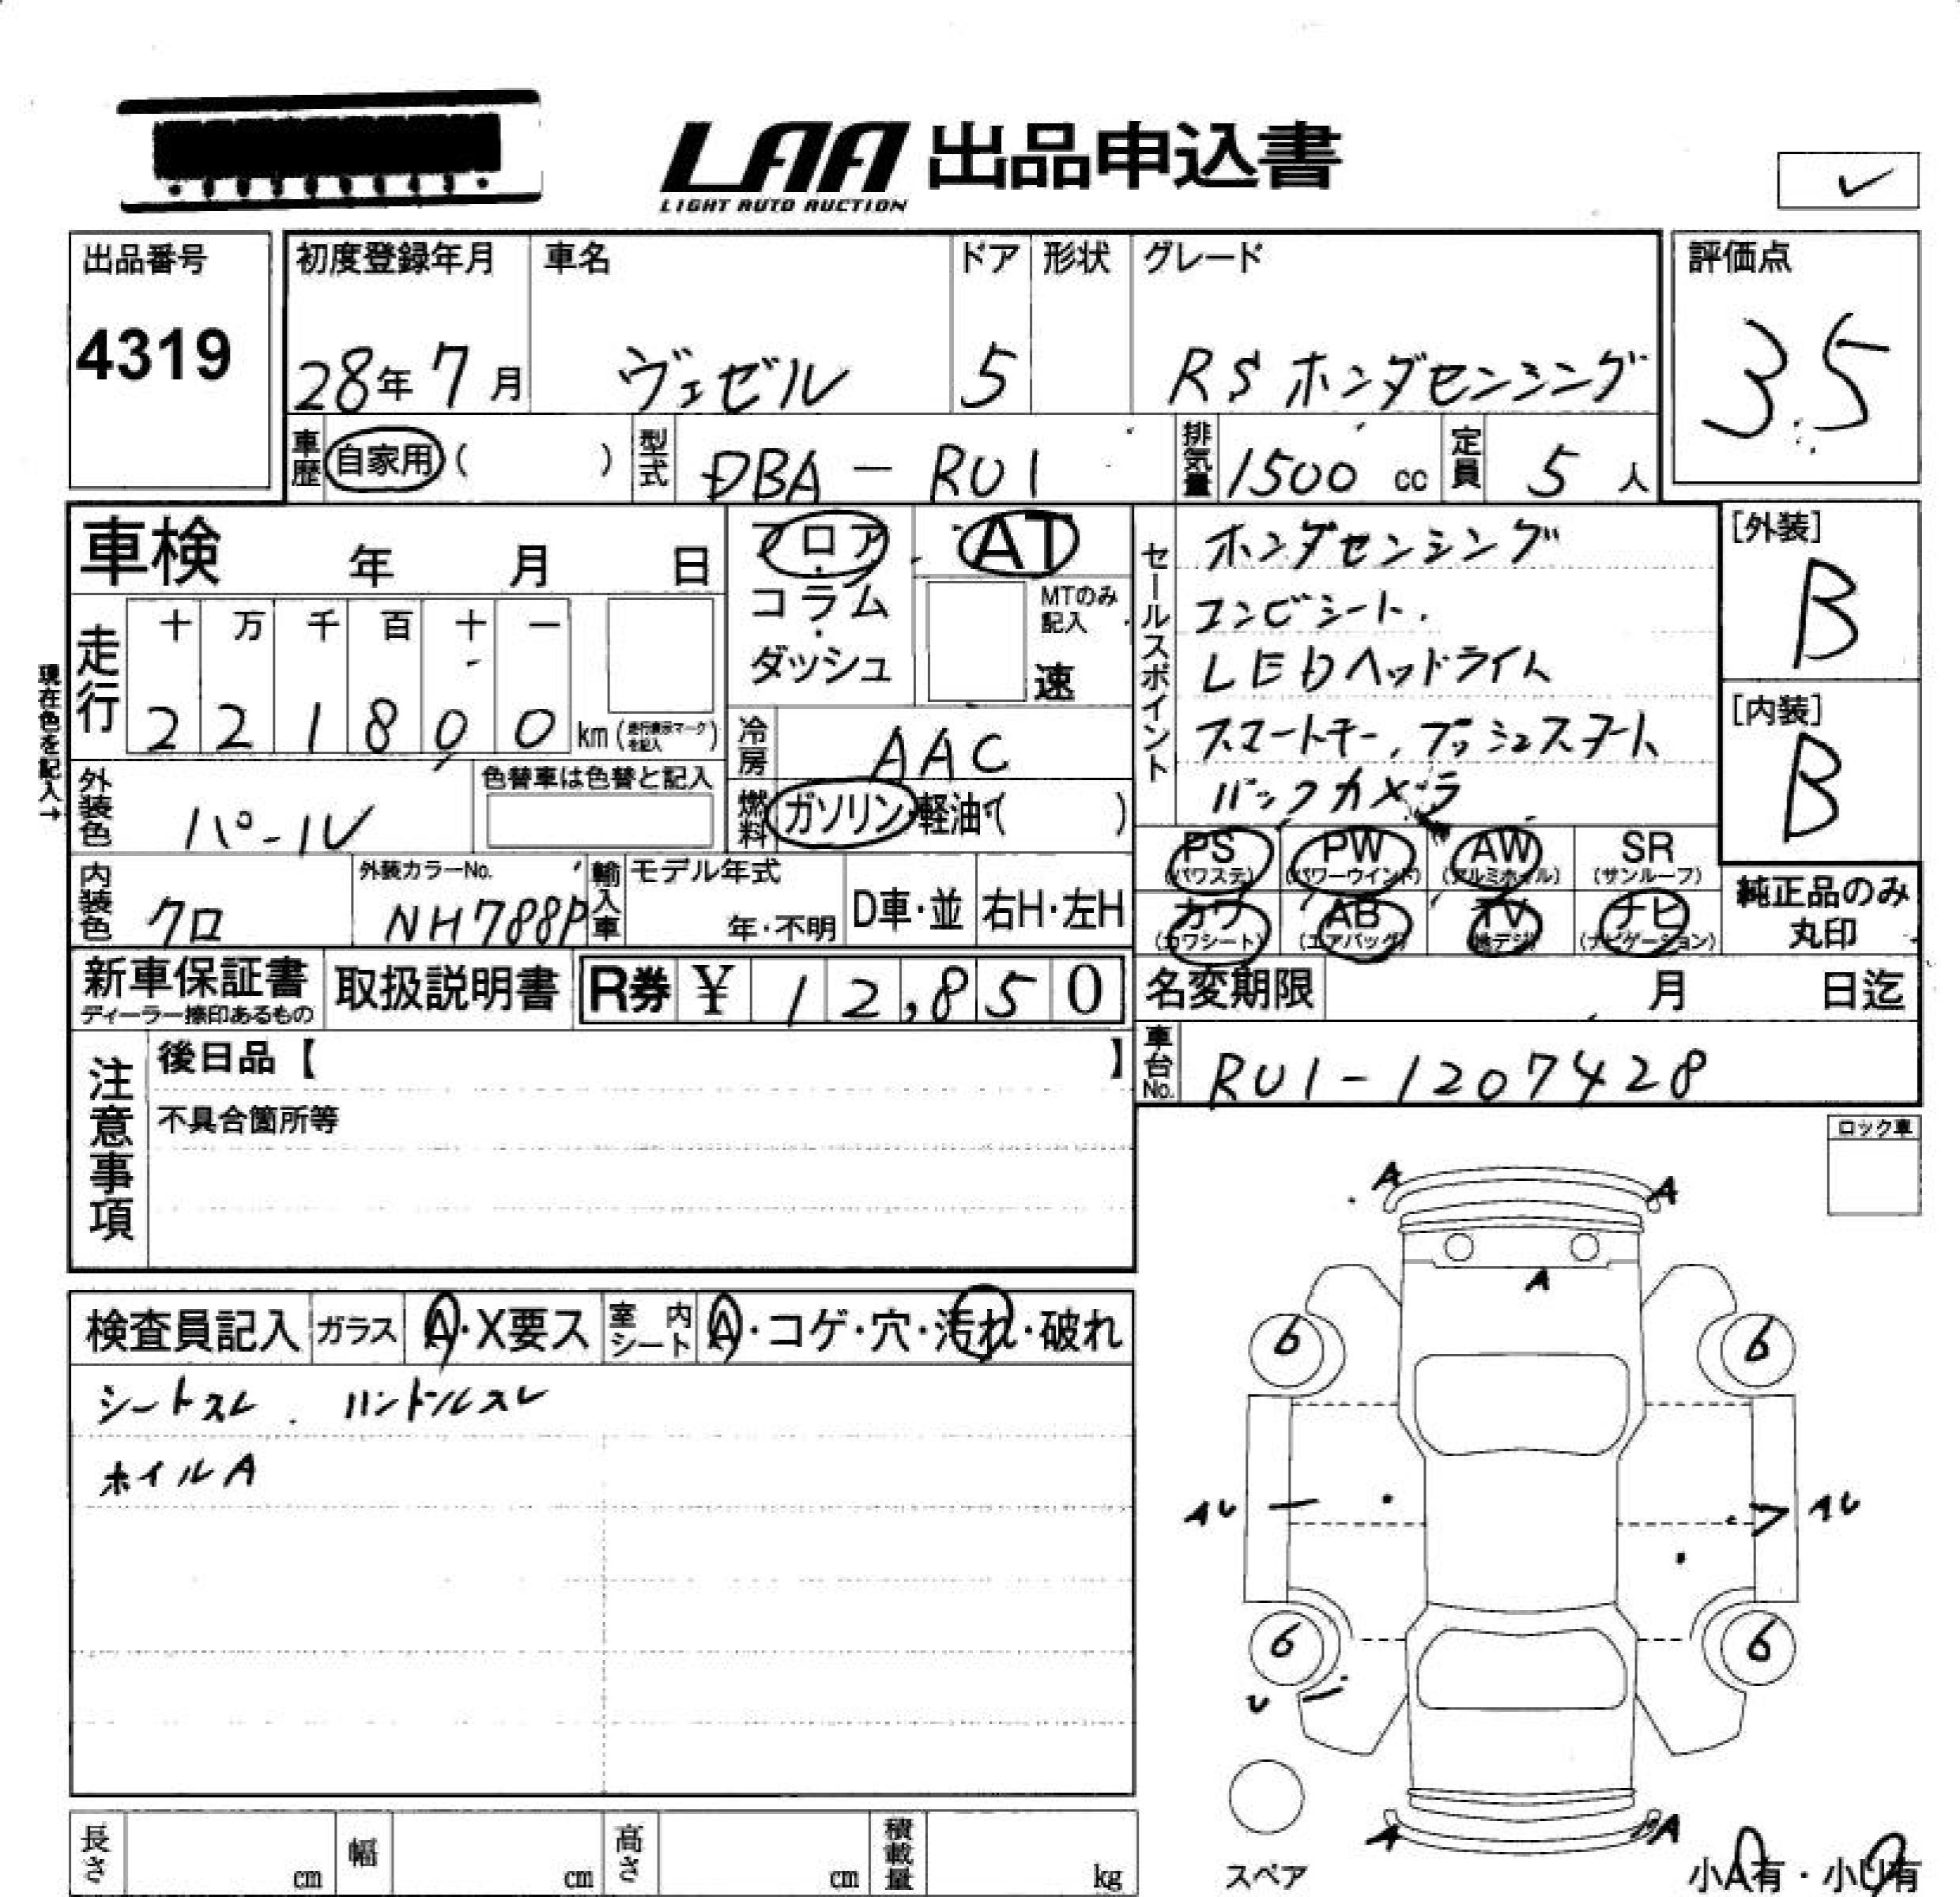 LAA 出品申込書
LIGHT AUTO AUCTION
✓
出品番号
4319
初度登録年月
28年7月
車名
ヴェゼル
ドア
5
形状
グレード
RS ホンダセンシング
評価点
3.5
車歴 自家用 ( )
型式 DBA-RU1
排気量 1500 cc
定員 5 人
車検 年 月 日
フロア・コラム・ダッシュ
AT
MTのみ記入
速
走行 十 万 千 百 十 一
2 2 1 8 0 0 km (走行表示マークを記入)
現在色を記入→
冷房 AAC
外装色 パール
色替車は色替と記入
燃料 ガソリン・軽油・( )
セールスポイント
ホンダセンシング
コンビシート.
LEDヘッドライト
スマートキー, プッシュスタート
バックカメラ
[外装]
B
[内装]
B
PS (パワステ) PW (パワーウインド) AW (アルミホイル) SR (サンルーフ)
カワ (カワシート) AB (エアバッグ) TV (地デジ) ナビ (ナビゲーション)
純正品のみ
丸印
内装色 クロ
外装カラーNo.
NH788P
輸入車 モデル年式
年・不明
D車・並 右H・左H
新車保証書
ディーラー捺印あるもの
取扱説明書
R券 ¥ 12,850
名変期限 月 日迄
車台No. RU1-1207428
注意事項
後日品【 】
不具合箇所等
ロック車
検査員記入 ガラス A・X要ス 室内シート A・コゲ・穴・汚れ・破れ
シートスレ . ハンドルスレ
ホイルA
A A
A
6 6
AU AU
6 6
U
A A
スペア
小A有・小U有
長さ cm 幅 cm 高さ cm 積載量 kg